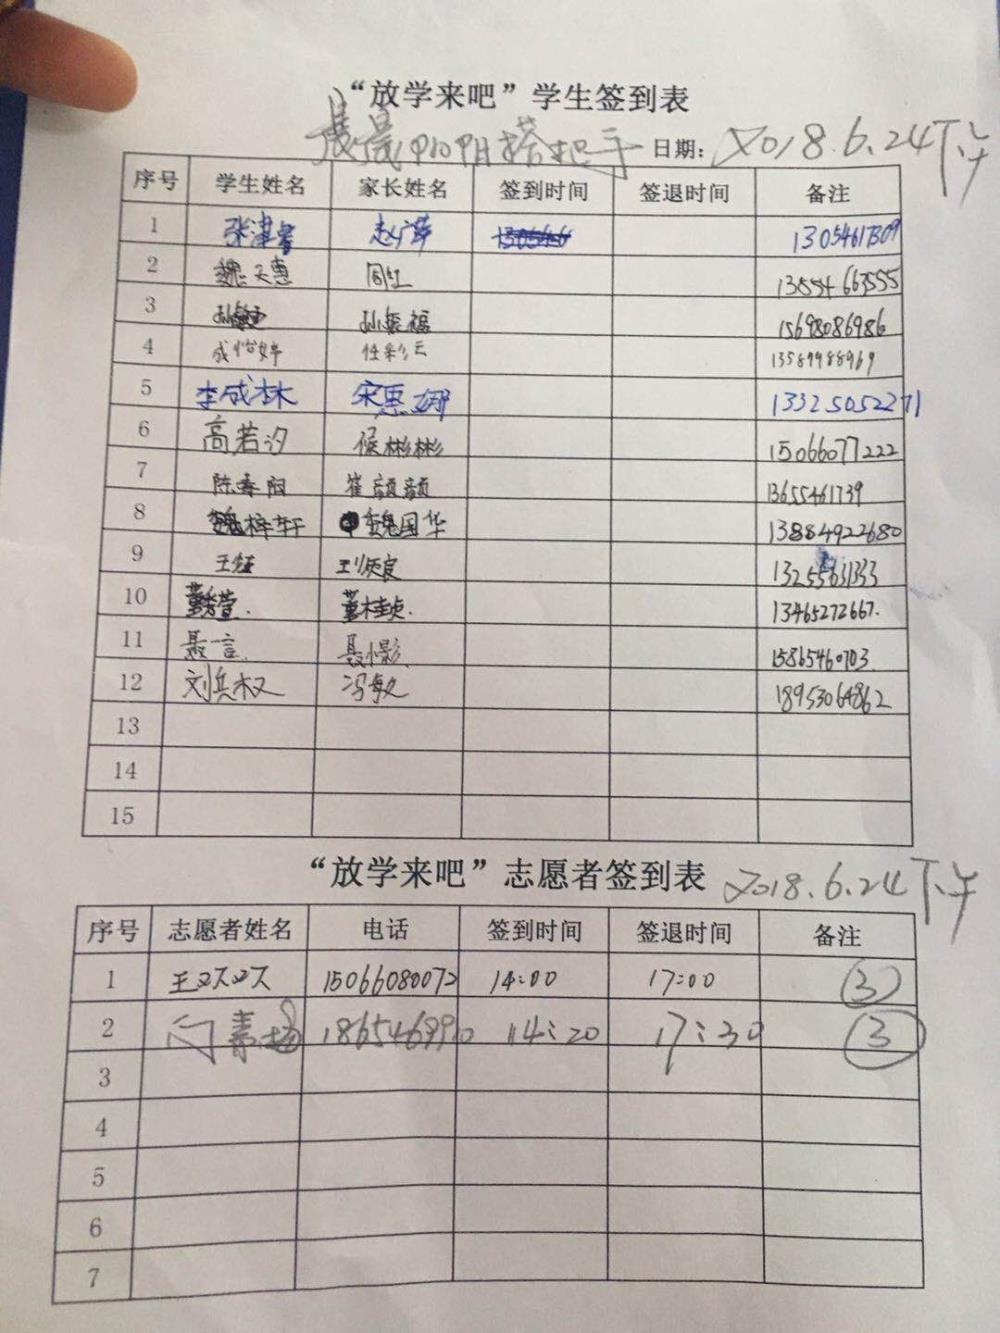 “放学来吧”学生签到表
日期：2018.6.24下午
序号 学生姓名 家长姓名 签到时间 签退时间 备注
1 赵广萍
2 魏天惠 周红 13554663555
3 孙振福 15698086986
4 成怡婷 任彩云 13589988969
5 李成林 宋恩娜 13325052271
6 高若汐 侯彬彬 15066077222
7 陈春阳 崔颜颜 13655461739
8 魏梓轩 魏国华 13884922680
9 王 13255631333
10 董 董桂贞. 13465272667.
11 聂一言. 聂小影. 15865460703
12 刘兵权 冯敏 18953064862
13
14
15
“放学来吧”志愿者签到表 2018.6.24下午
序号 志愿者姓名 电话 签到时间 签退时间 备注
1 王双双 15066080072 14:00 17:00 ③
2 14:20 17:30 ③
3
4
5
6
7